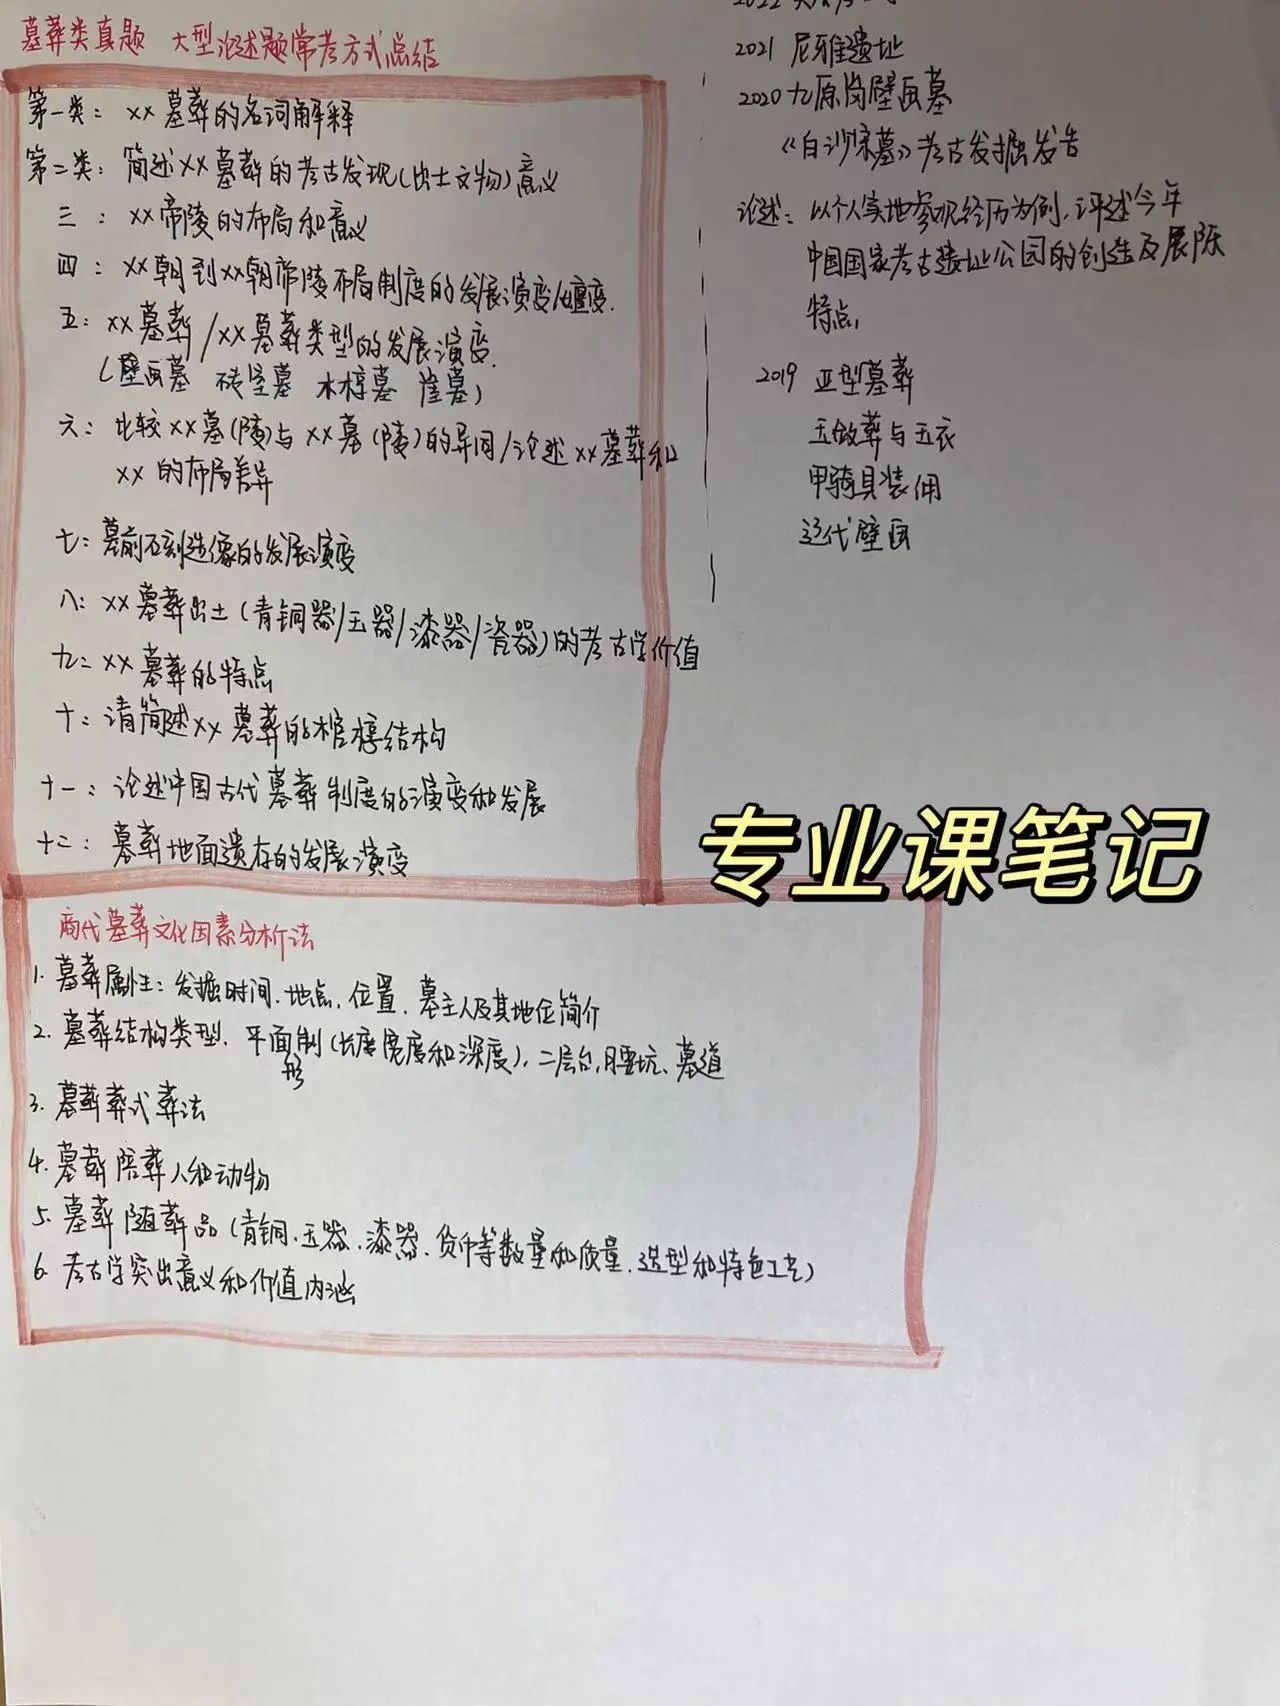 墓葬类真题 大型论述题常考方式总结
第一类: xx墓葬的名词解释
第二类: 简述xx墓葬的考古发现(出土文物)意义
三: xx帝陵的布局和意义
四: xx朝到xx朝帝陵布局制度的发展演变/嬗变.
五: xx墓葬/xx墓葬类型的发展演变.
(壁画墓 砖室墓 木椁墓 崖墓)
六: 比较xx墓(陵)与xx墓(陵)的异同/论述xx墓葬和
xx的布局差异
七: 墓前石刻造像的发展演变
八: xx墓葬出土(青铜器/玉器/漆器/瓷器)的考古学价值
九: xx墓葬的特点
十: 请简述xx墓葬的棺椁结构
十一: 论述中国古代墓葬制度的演变和发展
十二: 墓葬地面遗存的发展演变
商代墓葬文化因素分析法
1. 墓葬属性: 发掘时间、地点、位置、墓主人及其地位简介
2. 墓葬结构类型、平面制(长度宽度和深度), 二层台, 腰坑、墓道
形
3. 墓葬葬式葬法
4. 墓葬陪葬人和动物
5. 墓葬随葬品(青铜、玉器、漆器、货币等数量和质量、造型和特色工艺)
6. 考古学突出意义和价值内涵
2022
2021 尼雅遗址
2020 九原岗壁画墓
《白沙宋墓》考古发掘发告
论述: 以个人实地参观经历为例, 评述今年
中国国家考古遗址公园的创造及展陈
特点,
2019 亚型墓葬
玉敛葬与玉衣
甲骑具装俑
辽代壁画
专业课笔记